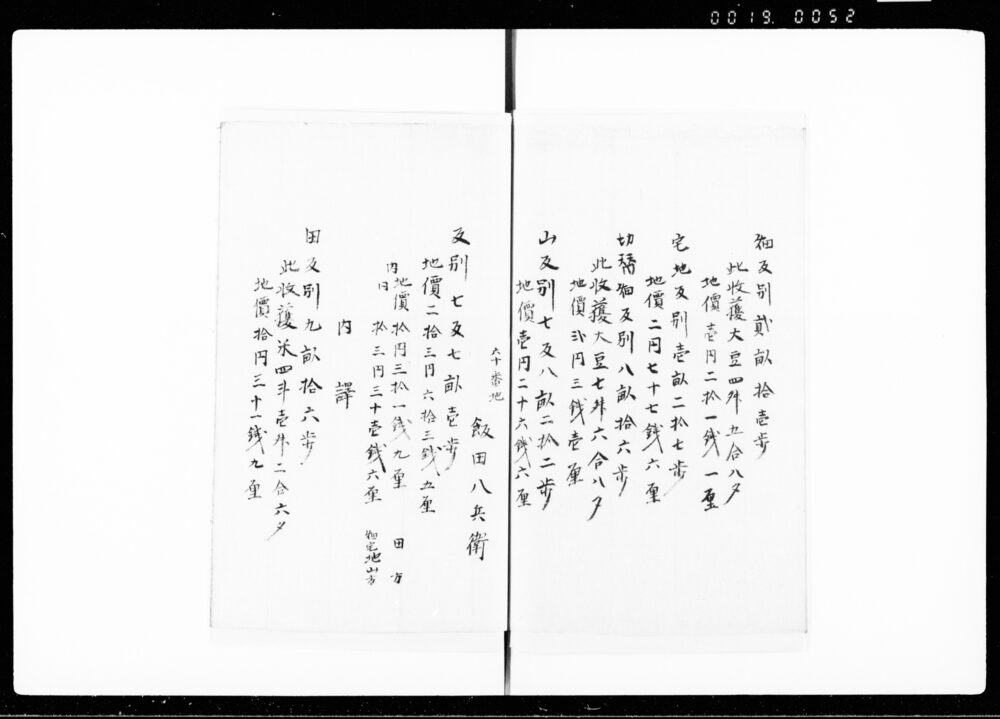 0019 0052
畑反別貳畝拾壱歩
此收穫大豆四舛五合八夕
地價壱円二拾一銭一厘
宅地反別壱畝二拾七歩
地價二円七十七銭六厘
切替畑反別八畝拾六歩
此收穫大豆七舛六合八夕
地價弐円三銭壱厘
山反別七反八畝二拾二歩
地價壱円二十六銭六厘
六十番地
飯田八兵衛
反別七反七畝壱歩
地價二拾三円六拾三銭五厘
内 地價拾円三拾一銭九厘 田方
内 〃拾三円三十壱銭六厘 畑宅地山方
内譯
田反別九畝拾六歩
此收穫米四斗壱舛二合六夕
地價拾円三十一銭九厘